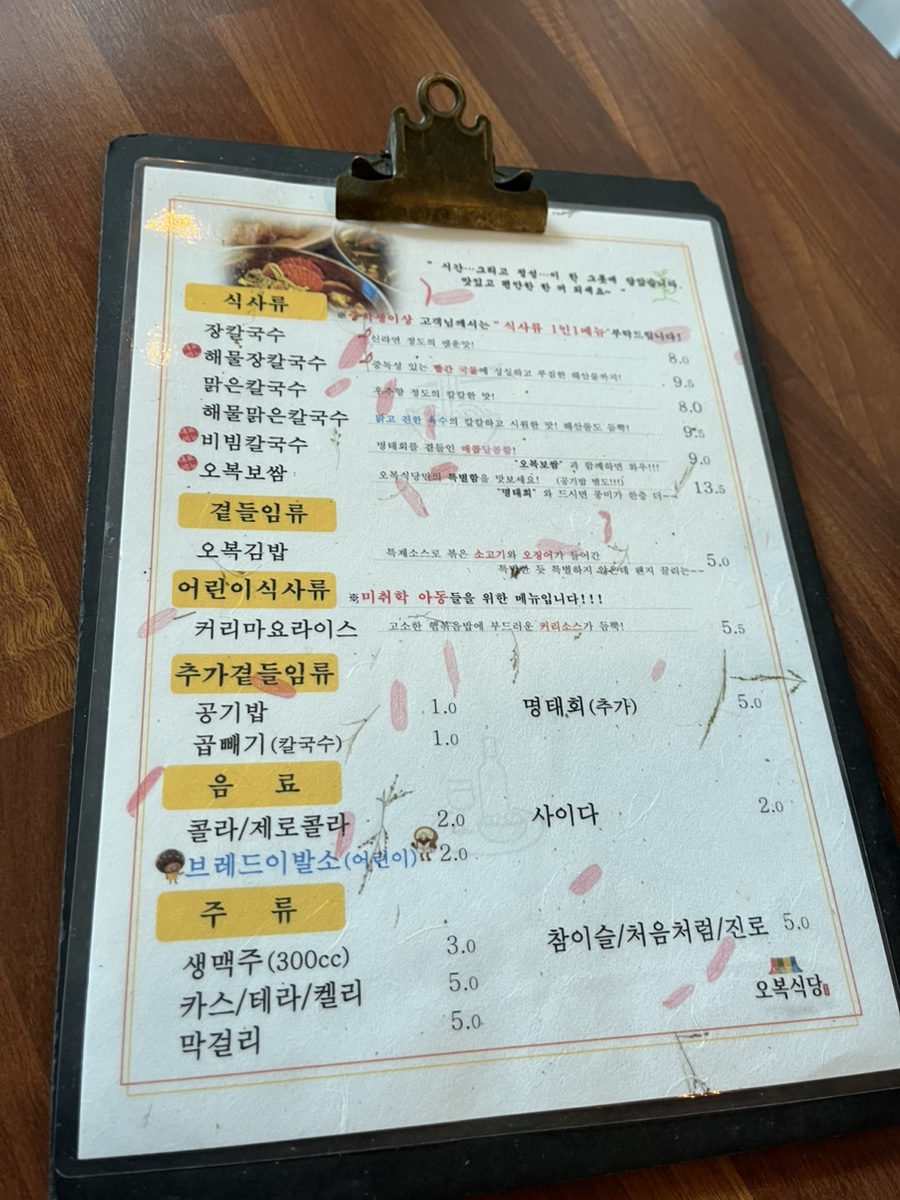 " 시간…그리고 정성…이 한 그릇에 담았습니다.
맛있고 편안한 한 끼 되세요~ "
식사류
※ 고객님께서는 " 식사류 1인1메뉴"부탁드립니다!
장칼국수 신라면 정도의 매운맛! 8.0
해물장칼국수 중독성 있는 빨간 국물에 싱싱하고 푸짐한 해산물까지! 9.5
맑은칼국수 후추향 정도의 칼칼한 맛! 8.0
해물맑은칼국수 맑고 진한 육수의 칼칼하고 시원한 맛! 해산물도 듬뿍! 9.5
비빔칼국수 명태회를 곁들인 매콤달콤함! 9.0
"오복보쌈" 과 함께하면 와우!!!
오복보쌈 오복식당만의 특별함을 맛보세요! (공기밥 별도!!!) 13.5
"명태회" 와 드시면 풍미가 한층 더~~
곁들임류
오복김밥 특제소스로 볶은 소고기와 오징어가 들어간 5.0
특별한 듯 특별하지 않은데 왠지 끌리는~~
어린이식사류 ※미취학 아동들을 위한 메뉴입니다!!!
커리마요라이스 고소한 햄볶음밥에 부드러운 커리소스가 듬뿍! 5.5
추가곁들임류
공기밥 1.0 명태회(추가) 5.0
곱빼기(칼국수) 1.0
음 료
콜라/제로콜라 2.0 사이다 2.0
브레드이발소(어린이) 2.0
주 류
생맥주(300cc) 3.0 참이슬/처음처럼/진로 5.0
카스/테라/켈리 5.0
막걸리 5.0
오복식당